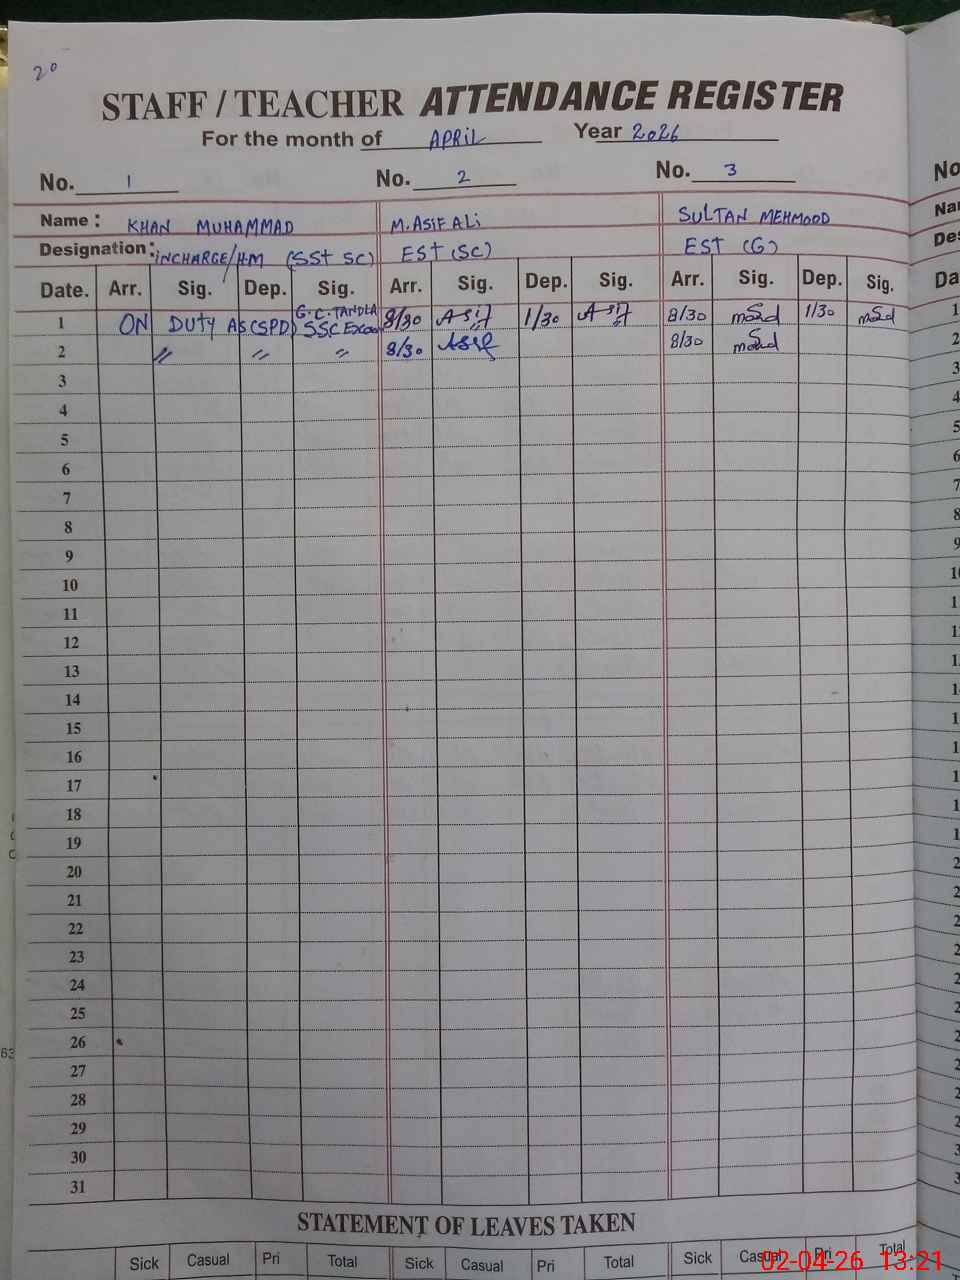 20
STAFF / TEACHER ATTENDANCE REGISTER
For the month of APRIL Year 2026
No. 1 No. 2 No. 3
Name : KHAN MUHAMMAD M. ASIF ALI SULTAN MEHMOOD
Designation : INCHARGE/HM (SST SC) EST (SC) EST (G)
Date. Arr. Sig. Dep. Sig. Arr. Sig. Dep. Sig. Arr. Sig. Dep. Sig.
1 ON DUTY AS (SPD) G.C. TANDLA SSC 8/30 Asif 1/30 Asif 8/30 1/30
2 〃 〃 〃 8/30 Asif 8/30
3
4
5
6
7
8
9
10
11
12
13
14
15
16
17
18
19
20
21
22
23
24
25
26
27
28
29
30
31
STATEMENT OF LEAVES TAKEN
Sick Casual Pri Total Sick Casual Pri Total Sick Casual Pri Total
02-04-26 13:21